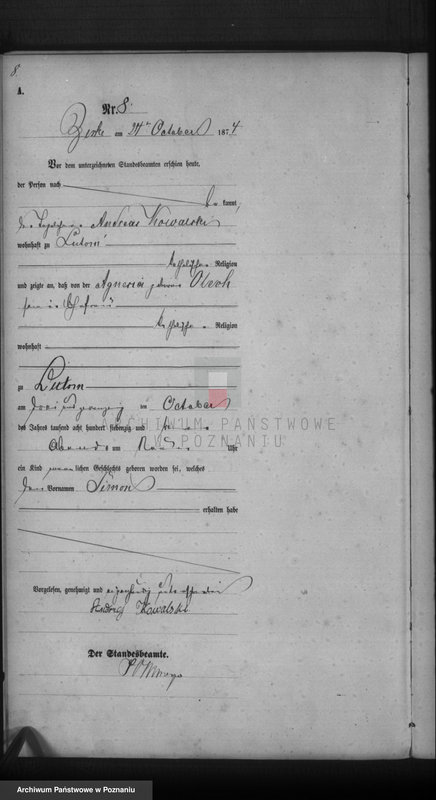 8.
A.
Nr. 8.
Zirke am 24ten October 1874
Vor dem unterzeichneten Standesbeamten erschien heute,
der Person nach
be kannt,
Andreas Kowalski
wohnhaft zu Lutom
katholischer Religion
und zeigte an, daß von der Agnesia geborene
seiner Ehefrau
katholischer Religion
wohnhaft
zu Lutom
am drei und zwanzig ten October
des Jahres tausend acht hundert siebenzig und
Abends um Uhr
ein Kind männlichen Geschlechts geboren worden sei, welches
den Vornamen Simon
erhalten habe
ARCHIWUM PAŃSTWOWE
W POZNANIU
Vorgelesen, genehmigt und eigenhändig unterschrieben
Andrzej Kowalski
Der Standesbeamte.
Archiwum Państwowe w Poznaniu